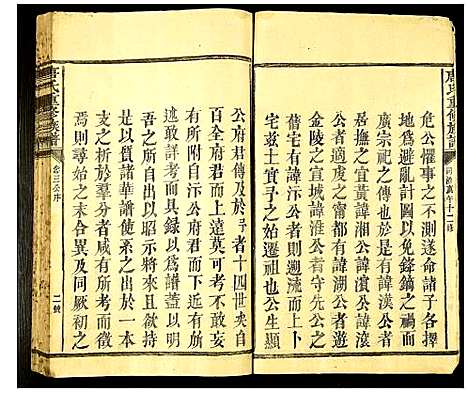 唐氏重修族譜
危公懼事之不測遂命諸子各擇
地為避亂計圖以免鋒鏑之禍而
廣宗祀之傳也於是有諱漢公者
居撫之宜黃諱湘公者居
公者適之甯都有諱湖公者居
金陵之宣黃諱淮公者守先公之
舊宅有諱汴公者則遡流而上卜
宅茲土實予之始遷祖也公生顯
百公府君傳及於予者十四世矣自
全府君而上遠莫可考不敢妄
有所附自汴公府君而下近有所
述敢詳考而具錄以為譜蓋以明
吾三宣之出昭示將來且欲持
是以質諸華譜使系之出於一
支之析於羣分者咸有所考而徵
焉則尋始之末合異及同厥初之
唐氏重修族譜
二